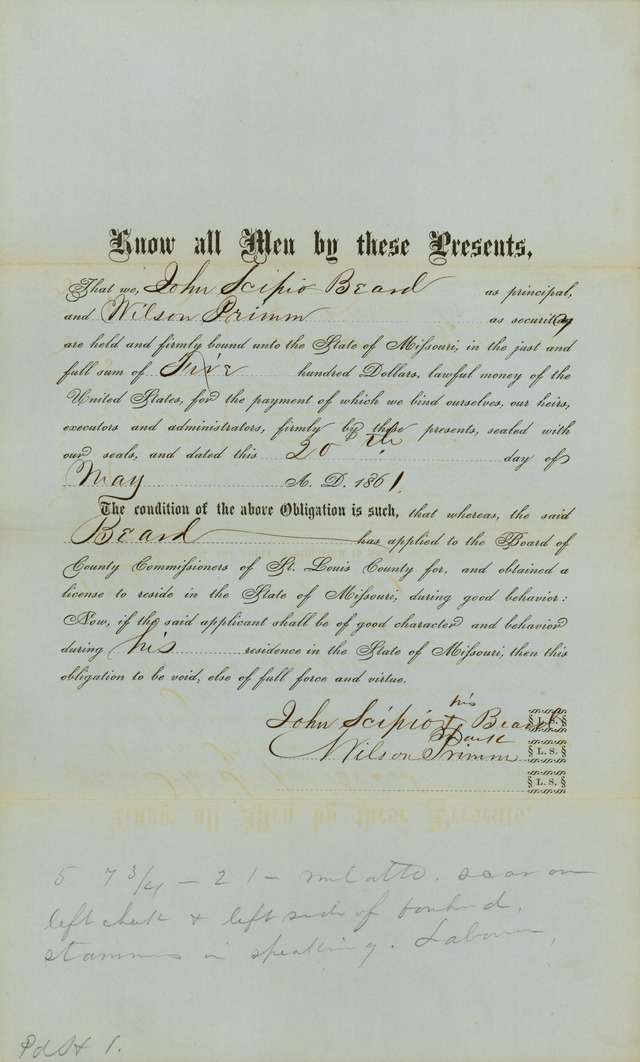 Know all Men by these Presents,
That we, John Scipio Beard as principal,
and Wilson Primm as security
are held and firmly bound unto the State of Missouri, in the just and
full sum of Five hundred Dollars, lawful money of the
United States, for the payment of which we bind ourselves, our heirs,
executors and administrators, firmly by these presents, sealed with
our seals, and dated this 20th day of
May A. D. 1861.
The condition of the above Obligation is such, that whereas, the said
Beard has applied to the Board of
County Commissioners of St. Louis County for, and obtained a
license to reside in the State of Missouri, during good behavior:
Now, if the said applicant shall be of good character and behavior
during his residence in the State of Missouri, then this
obligation to be void, else of full force and virtue.
his
John Scipio + Beard L. S.
mark
Wilson Primm L. S.
L. S.
5 7 3/4 - 21 - mulatto. scar on
left cheek & left side of forehead,
stammers in speaking. Laborer,
Pd St 1.